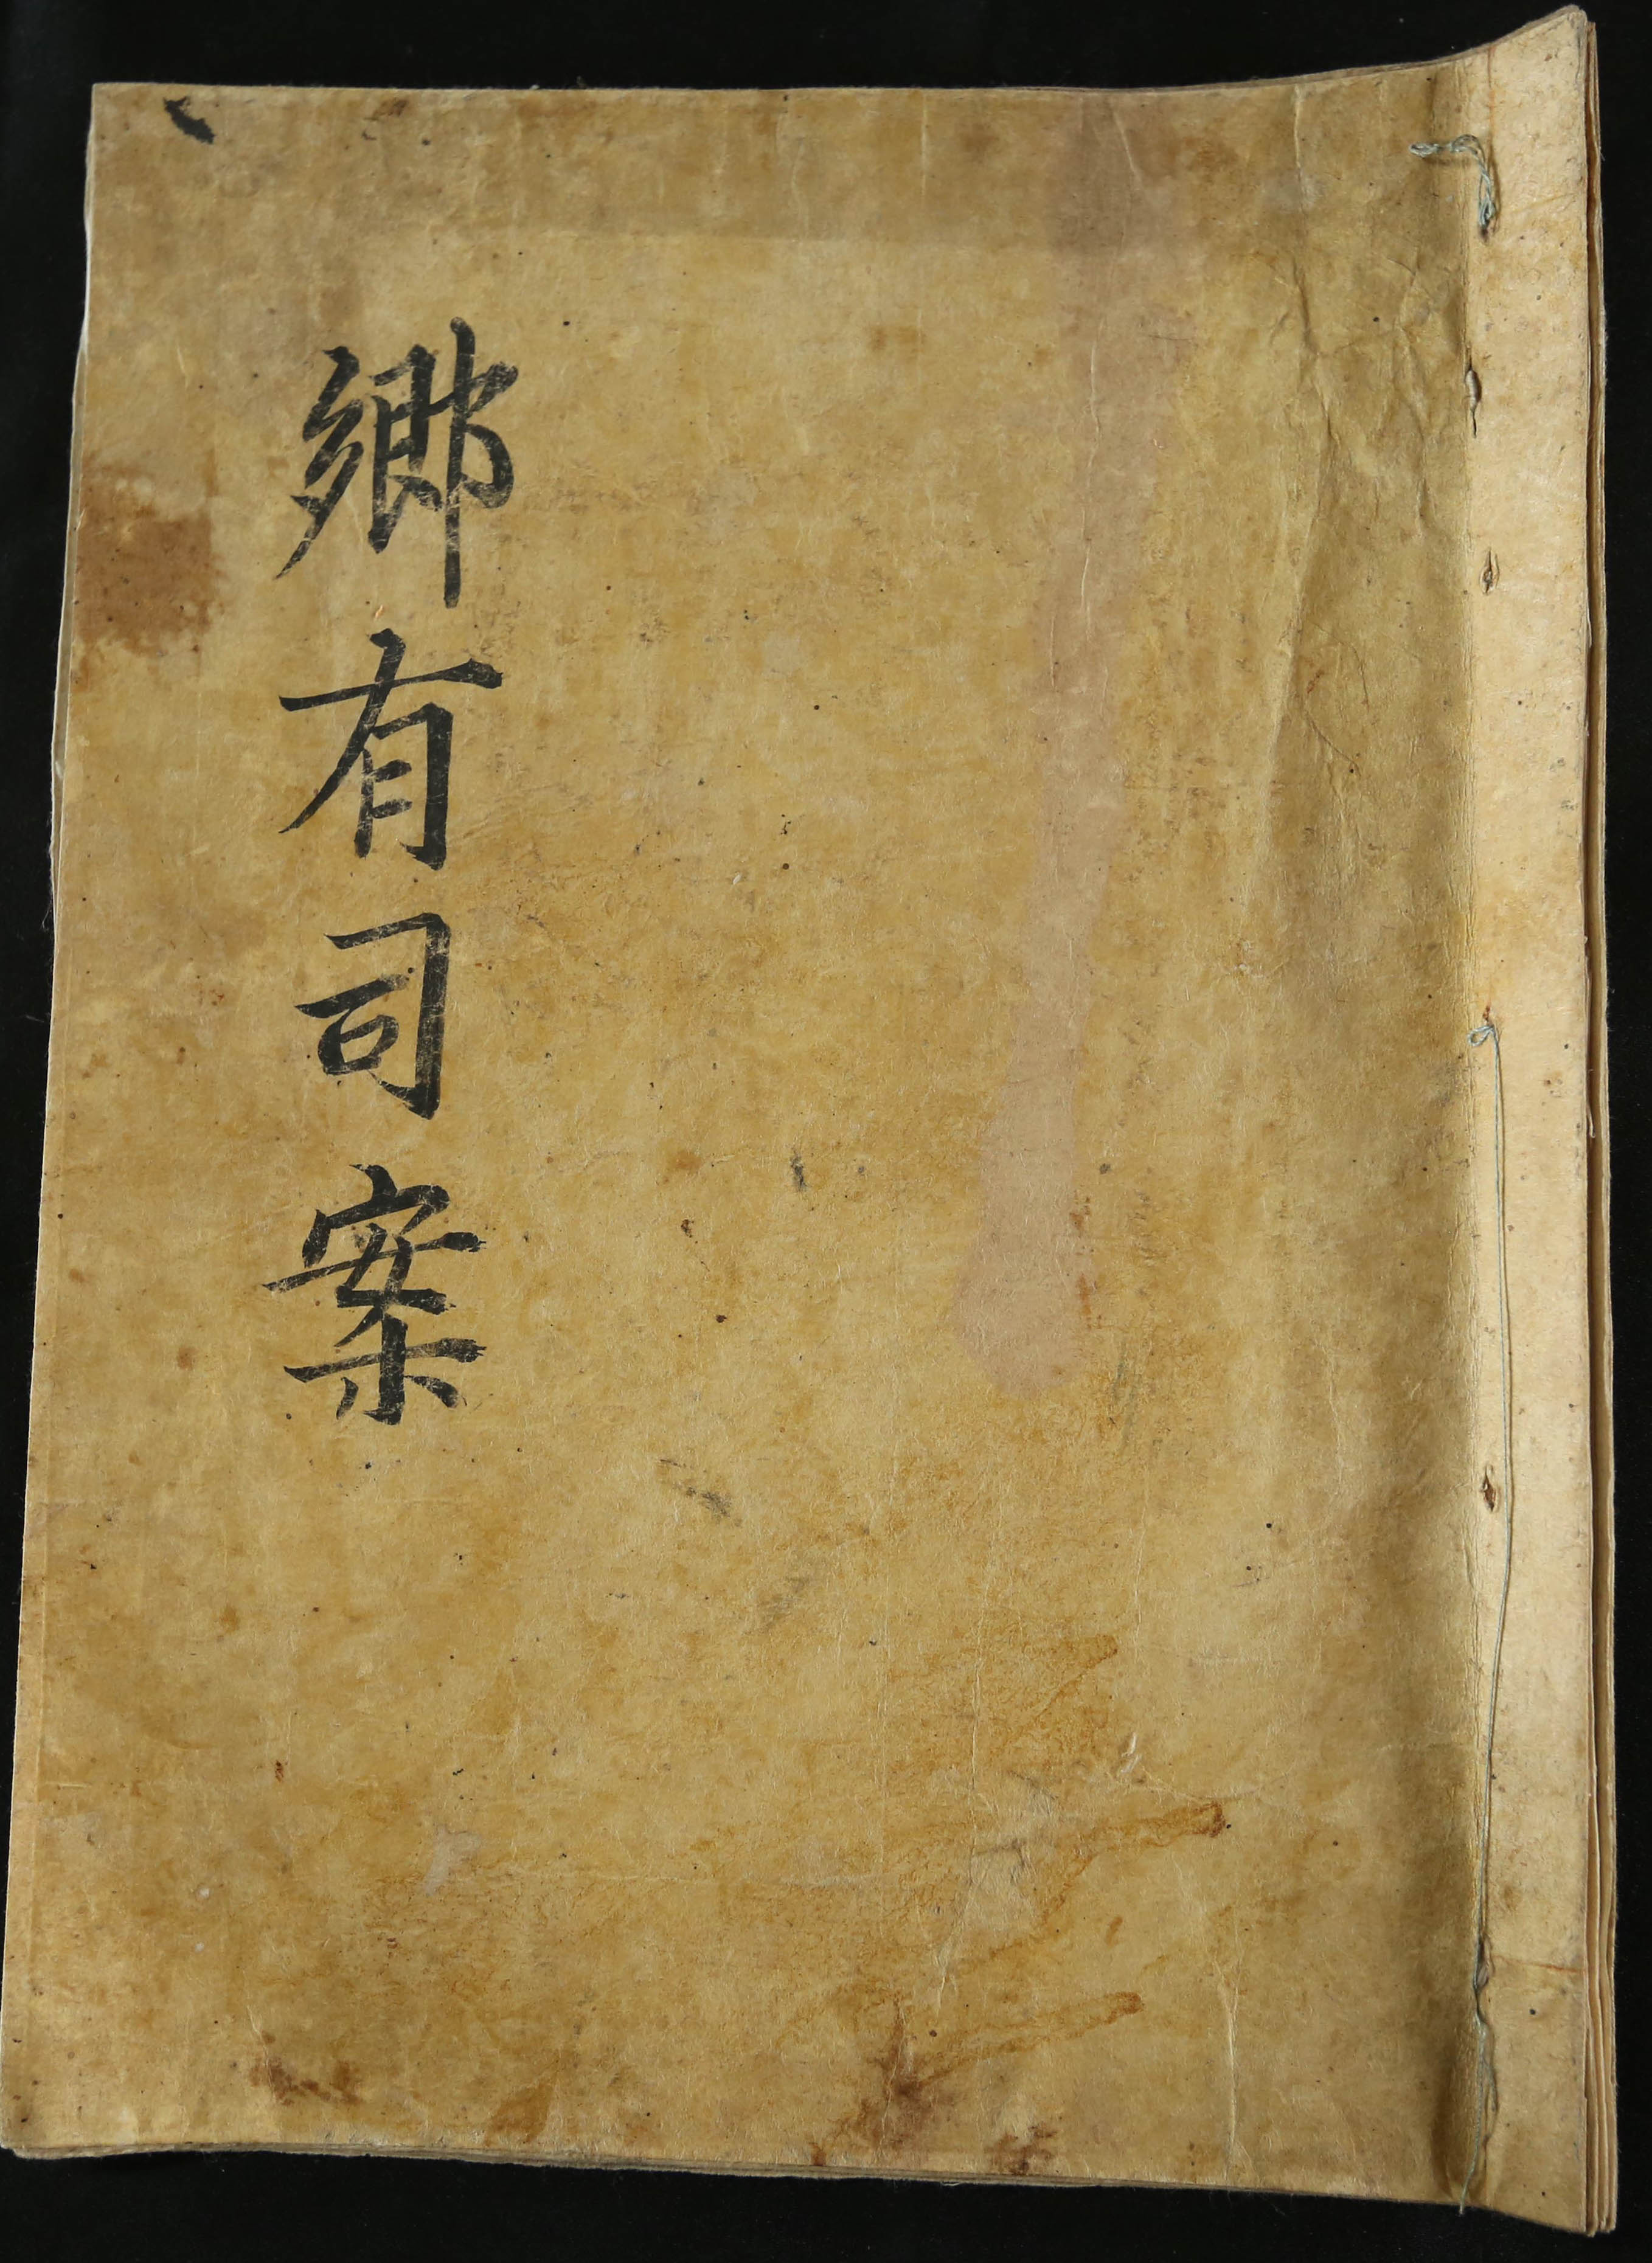 鄕有司案